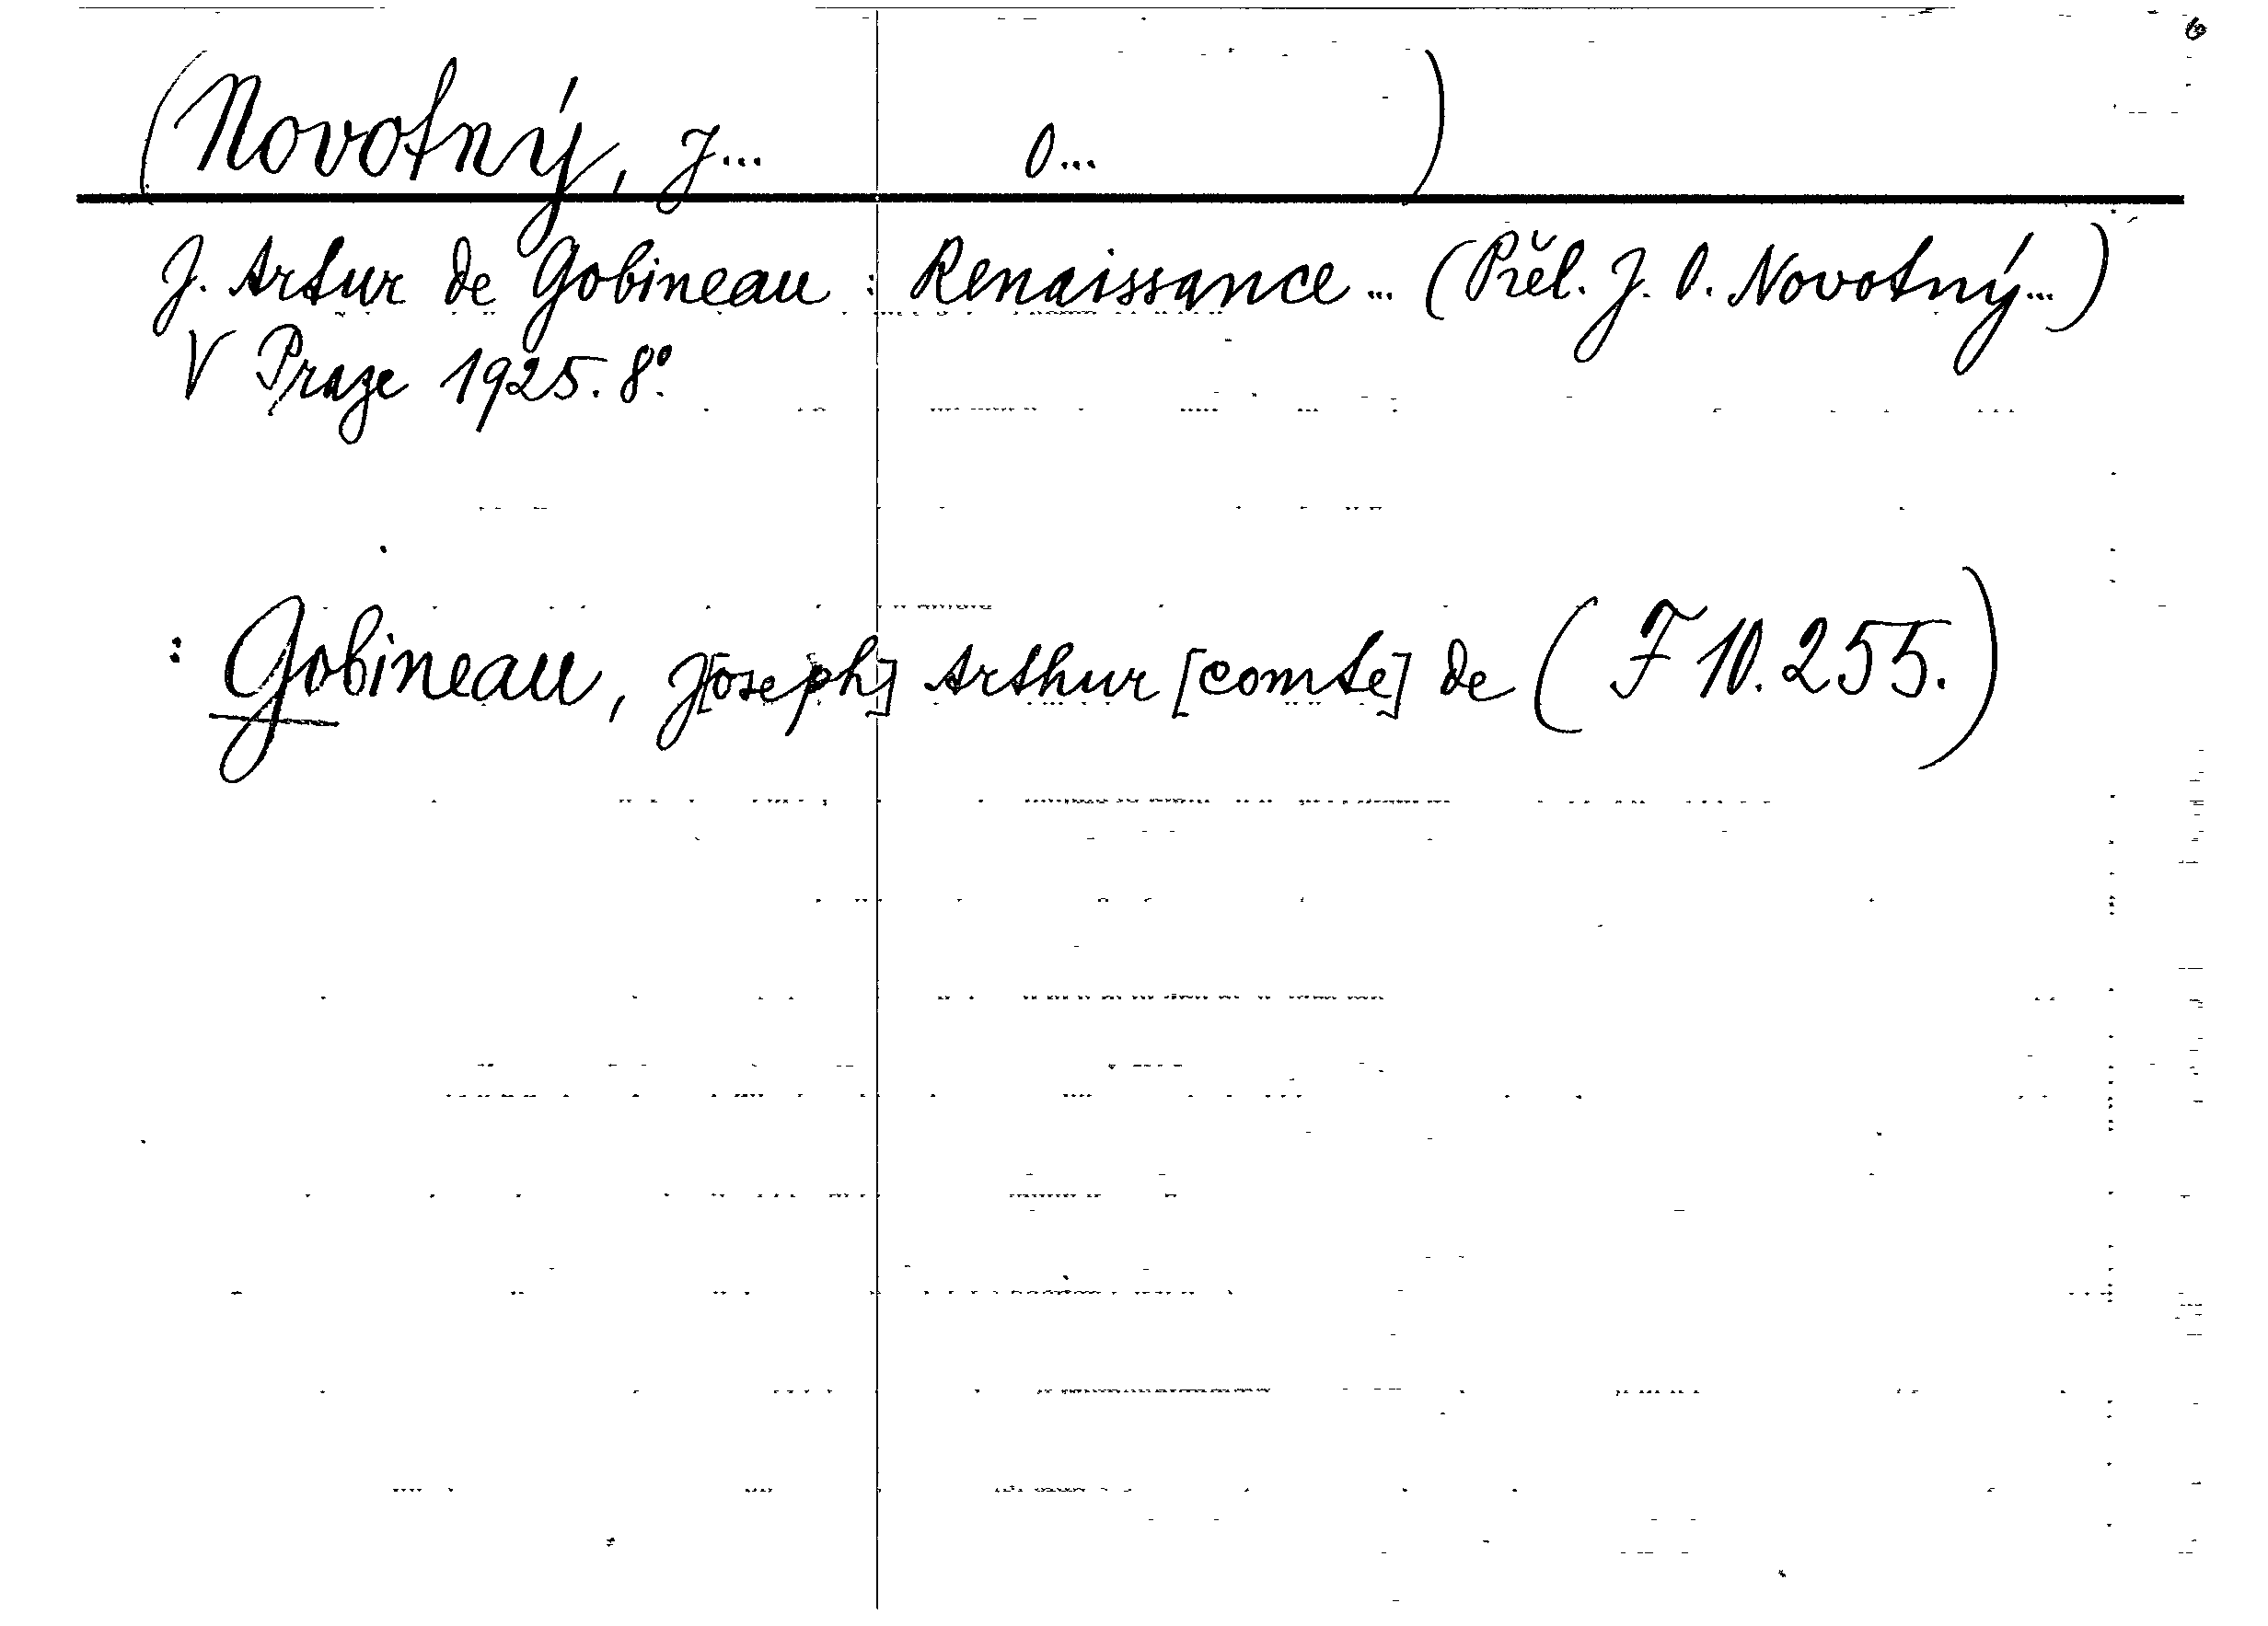 (Novotný, J... O...)
J. Artur de Gobineau : Renaissance ... (Přel. J. O. Novotný ...)
V Praze 1925. 8°.
: Gobineau, J[oseph] Arthur [comte] de (F 10.255.)